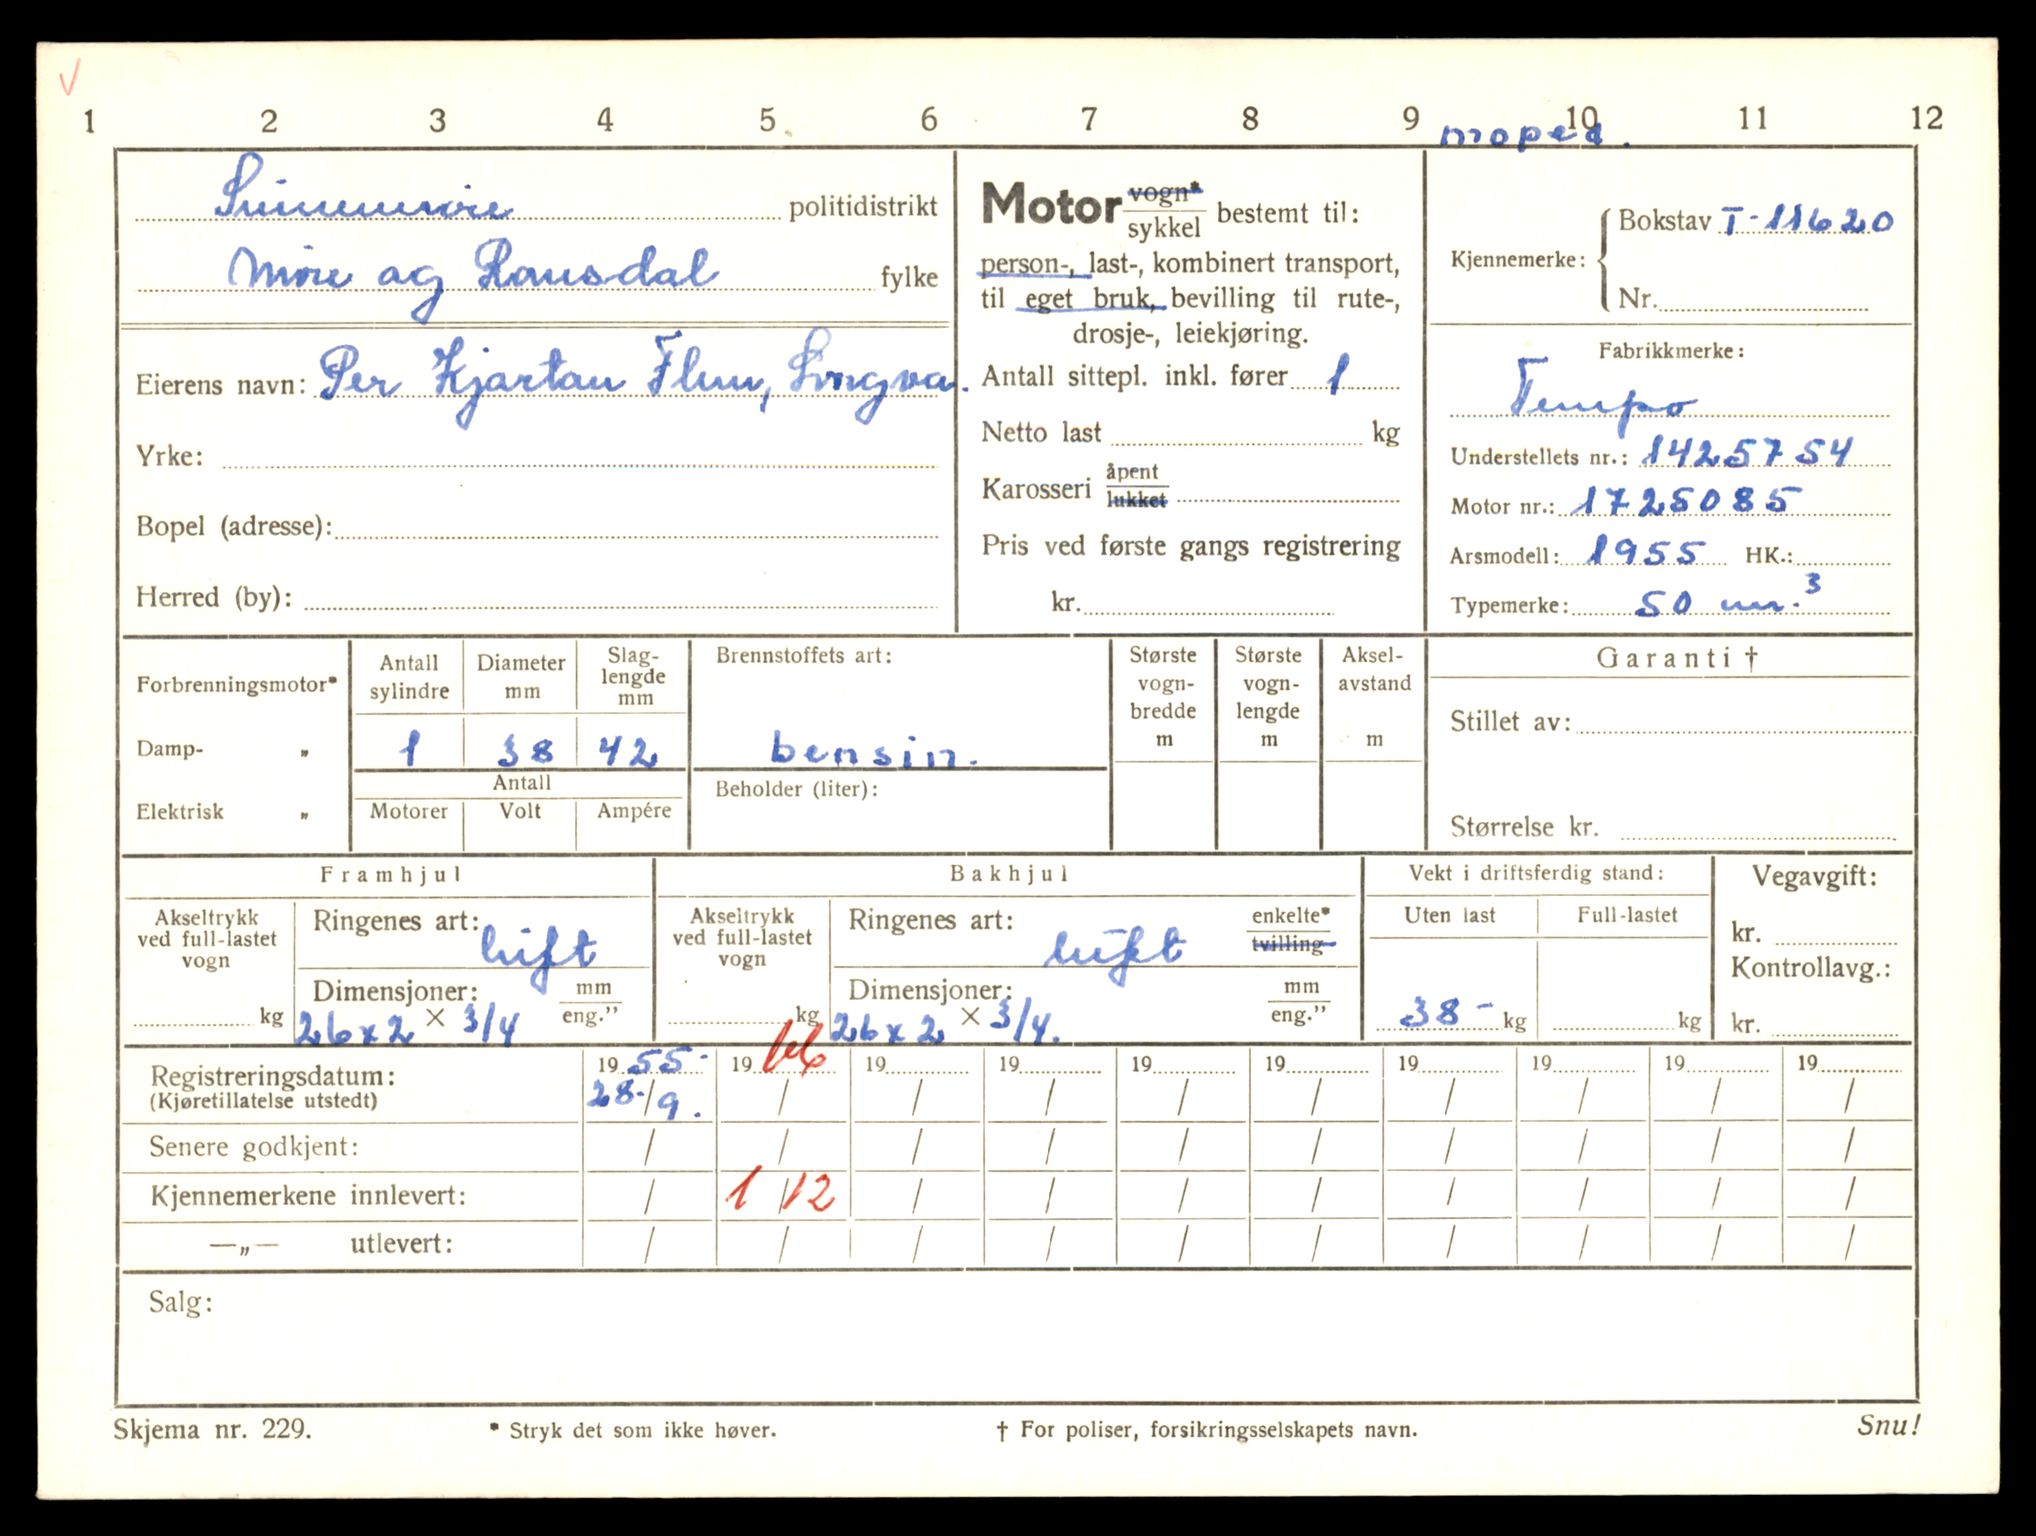 V
1 2 3 4 5 6 7 8 9 10 11 12
moped.
Sunnmøre politidistrikt
Møre og Romsdal fylke
Eierens navn: Per Kjartan Flem, Longva.
Yrke:
Bopel (adresse):
Herred (by):
Motor vogn* sykkel bestemt til:
person-, last-, kombinert transport,
til eget bruk, bevilling til rute-,
drosje-, leiekjøring.
Antall sittepl. inkl. fører 1
Netto last kg
Karosseri åpent lukket
Pris ved første gangs registrering
kr.
Kjennemerke: Bokstav T-11620
Nr.
Fabrikkmerke:
Tempo
Understellets nr.: 1425754
Motor nr.: 1725085
Arsmodell: 1955 HK.:
Typemerke: 50 cm.³
Forbrenningsmotor*
Damp- „
Elektrisk „
Antall sylindre
Diameter mm
Slag-lengde mm
1 38 42
Antall
Motorer Volt Ampére
Brennstoffets art:
bensin.
Beholder (liter):
Største vogn-bredde m
Største vogn-lengde m
Aksel-avstand m
Garanti †
Stillet av:
Størrelse kr.
Framhjul
Akseltrykk ved full-lastet vogn
kg
Ringenes art: luft
Dimensjoner: mm eng."
26 x 2 × 3/4
Bakhjul
Akseltrykk ved full-lastet vogn
kg
Ringenes art: luft enkelte* tvilling
Dimensjoner: mm eng."
26 x 2 × 3/4.
Vekt i driftsferdig stand:
Uten last Full-lastet
38- kg kg
Vegavgift:
kr.
Kontrollavg.:
kr.
Registreringsdatum: 19 55- 19 66 19 19 19 19 19 19 19 19
(Kjøretillatelse utstedt) 28./9. / / / / / / / / /
Senere godkjent: / / / / / / / / / /
Kjennemerkene innlevert: / 1/12 / / / / / / / /
—„— utlevert: / / / / / / / / / /
Salg:
Skjema nr. 229. * Stryk det som ikke høver. † For poliser, forsikringsselskapets navn. Snu!